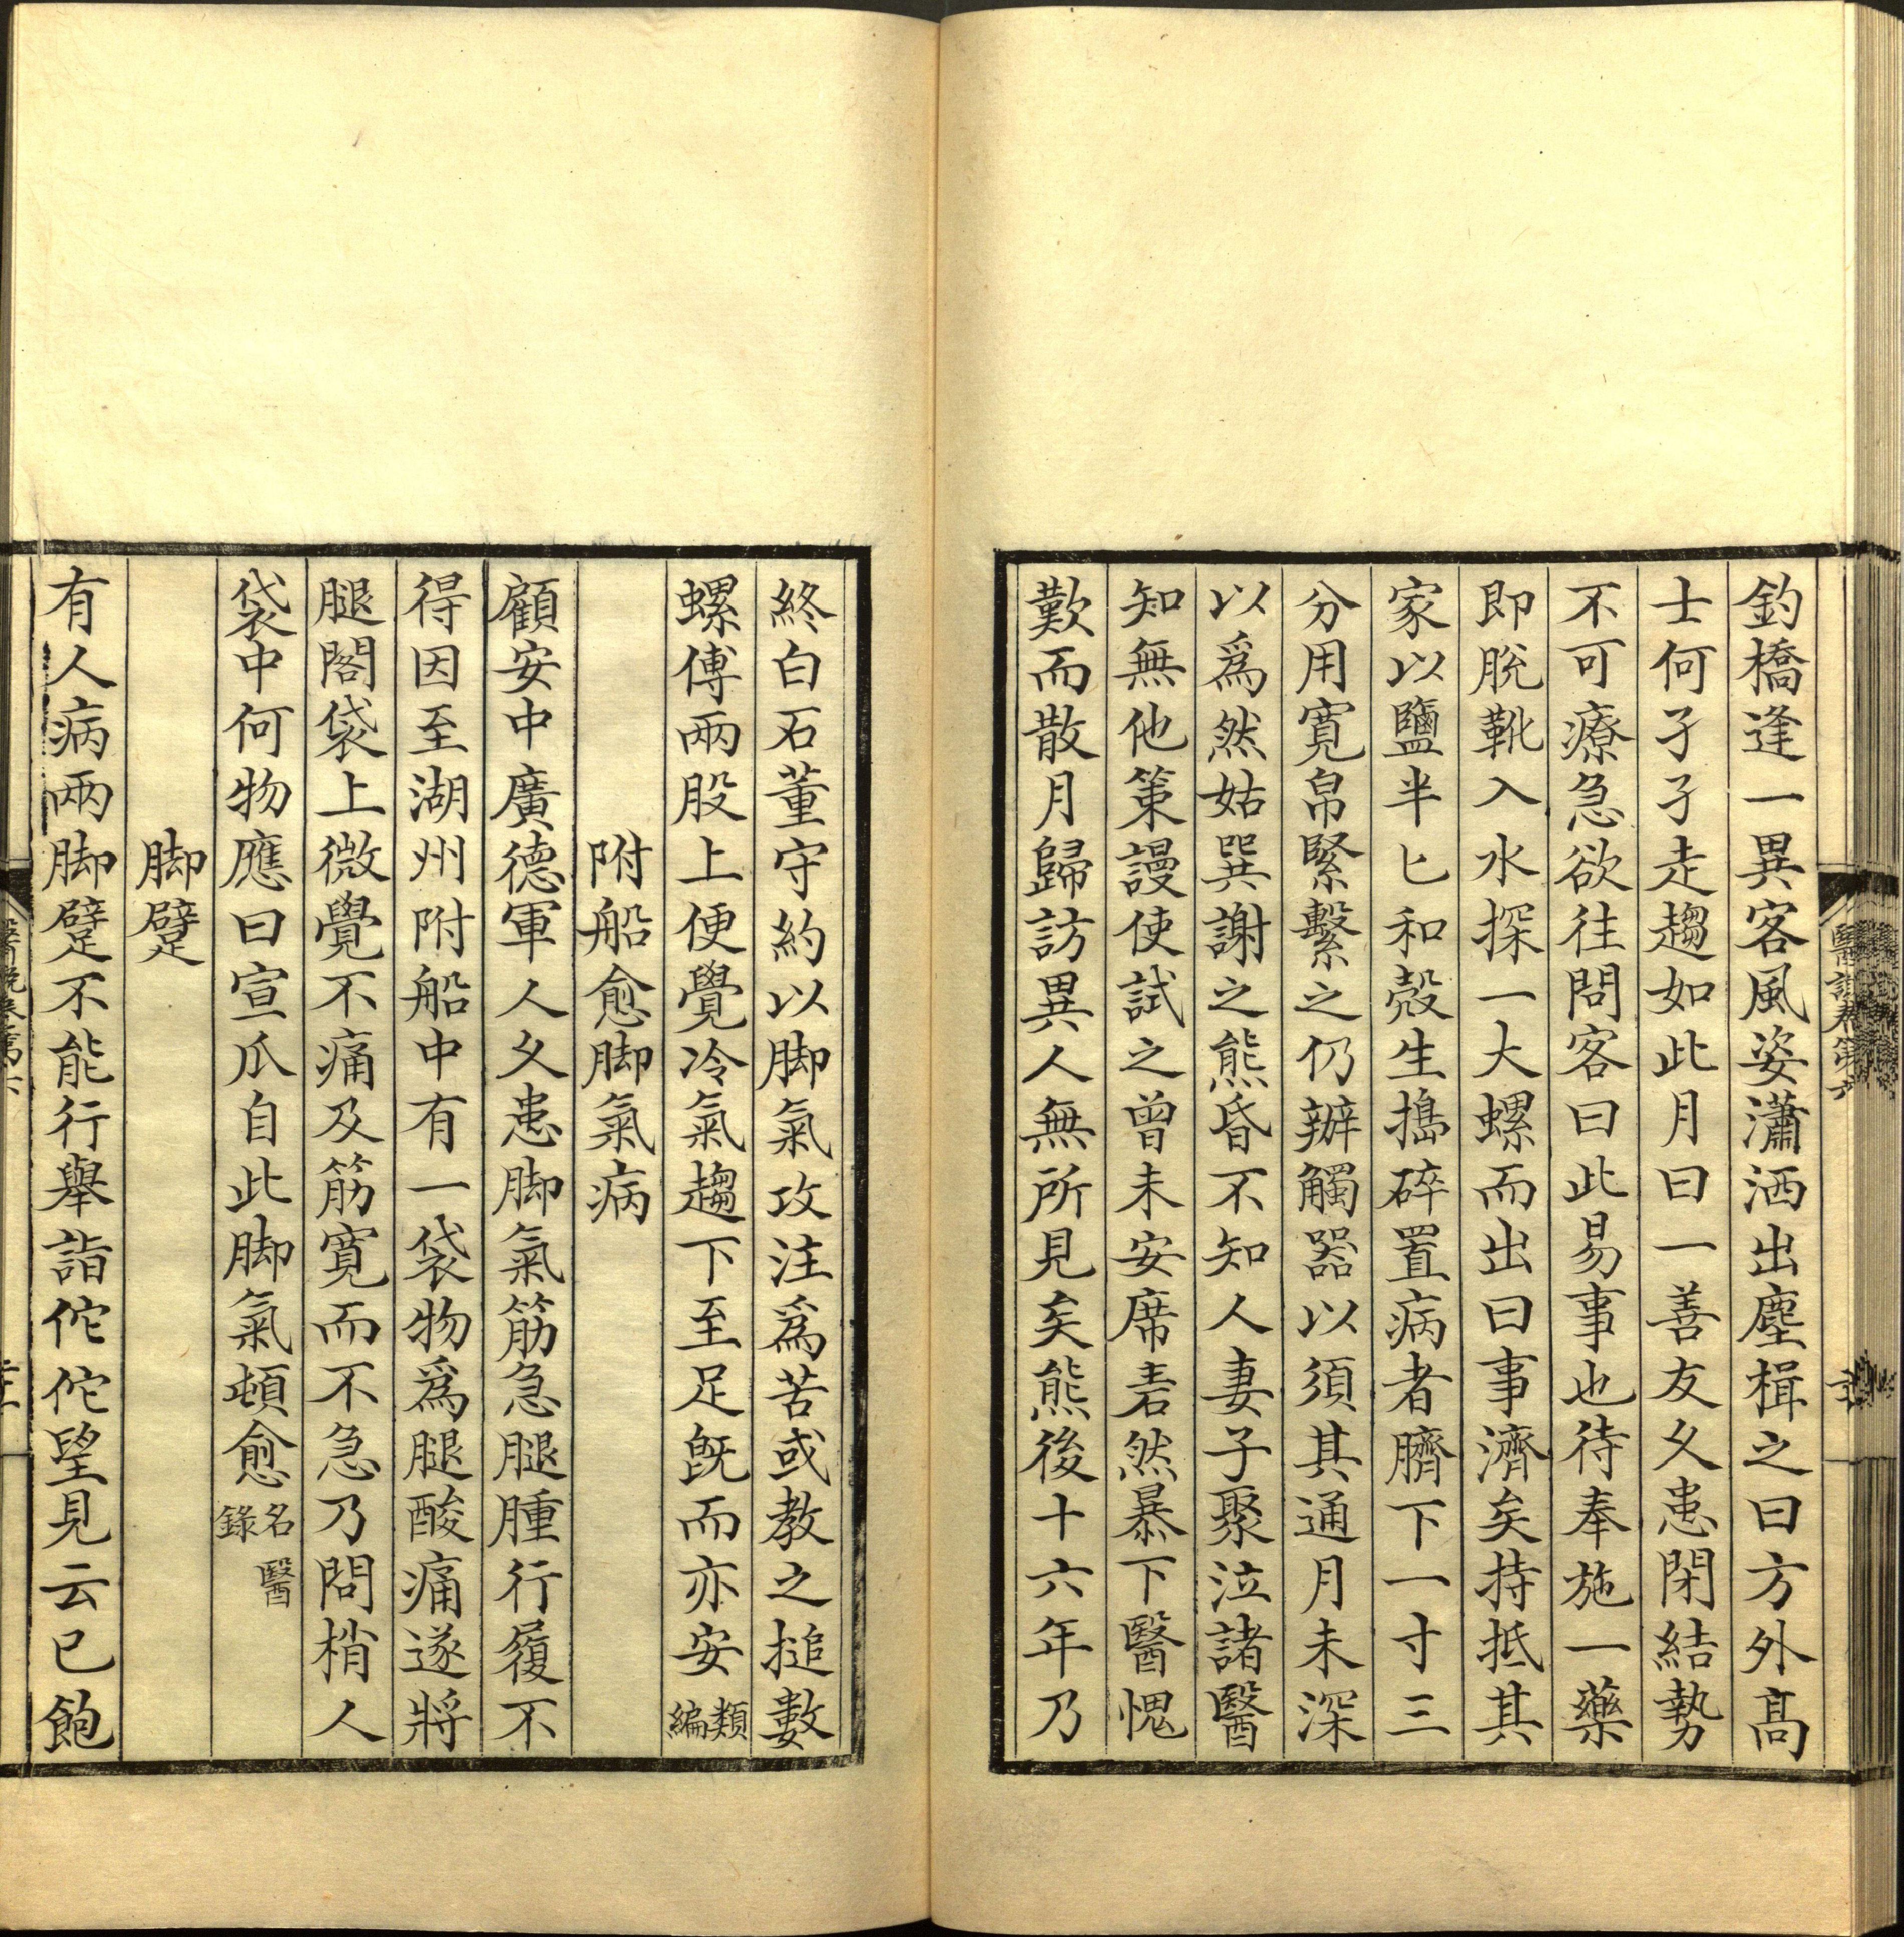 釣橋逢一異客風姿瀟洒出塵揖之曰方外高
士何孑孑走趨如此月曰一善友久患閉結勢
不可療急欲往問客曰此易事也待奉施一藥
即脫靴入水探一大螺而出曰事濟矣持抵其
家以鹽半匕和殼生搗碎置病者臍下一寸三
分用寬帛緊繫之仍辦觸器以須其通月未深
以爲然姑巽謝之熊昏不知人妻子聚泣諸醫
知無他策謾使試之曾未安席砉然暴下醫愧
歎而散月歸訪異人無所見矣熊後十六年乃
終白石董守約以脚氣攻注爲苦或教之搥數
螺傅兩股上便覺冷氣趨下至足旣而亦安類編
附船愈脚氣病
顧安中廣德軍人久患脚氣筋急腿腫行履不
得因至湖州附船中有一袋物爲腿酸痛遂將
腿閣袋上微覺不痛及筋寬而不急乃問梢人
袋中何物應曰宣瓜自此脚氣頓愈名醫錄
脚躄
有人病兩脚躄不能行舉詣佗佗望見云已飽